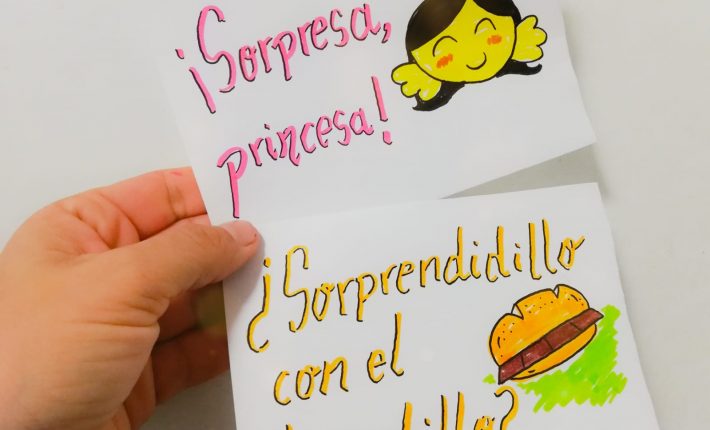 ¡Sorpresa,
princesa!
¿Sorprendidillo
con el